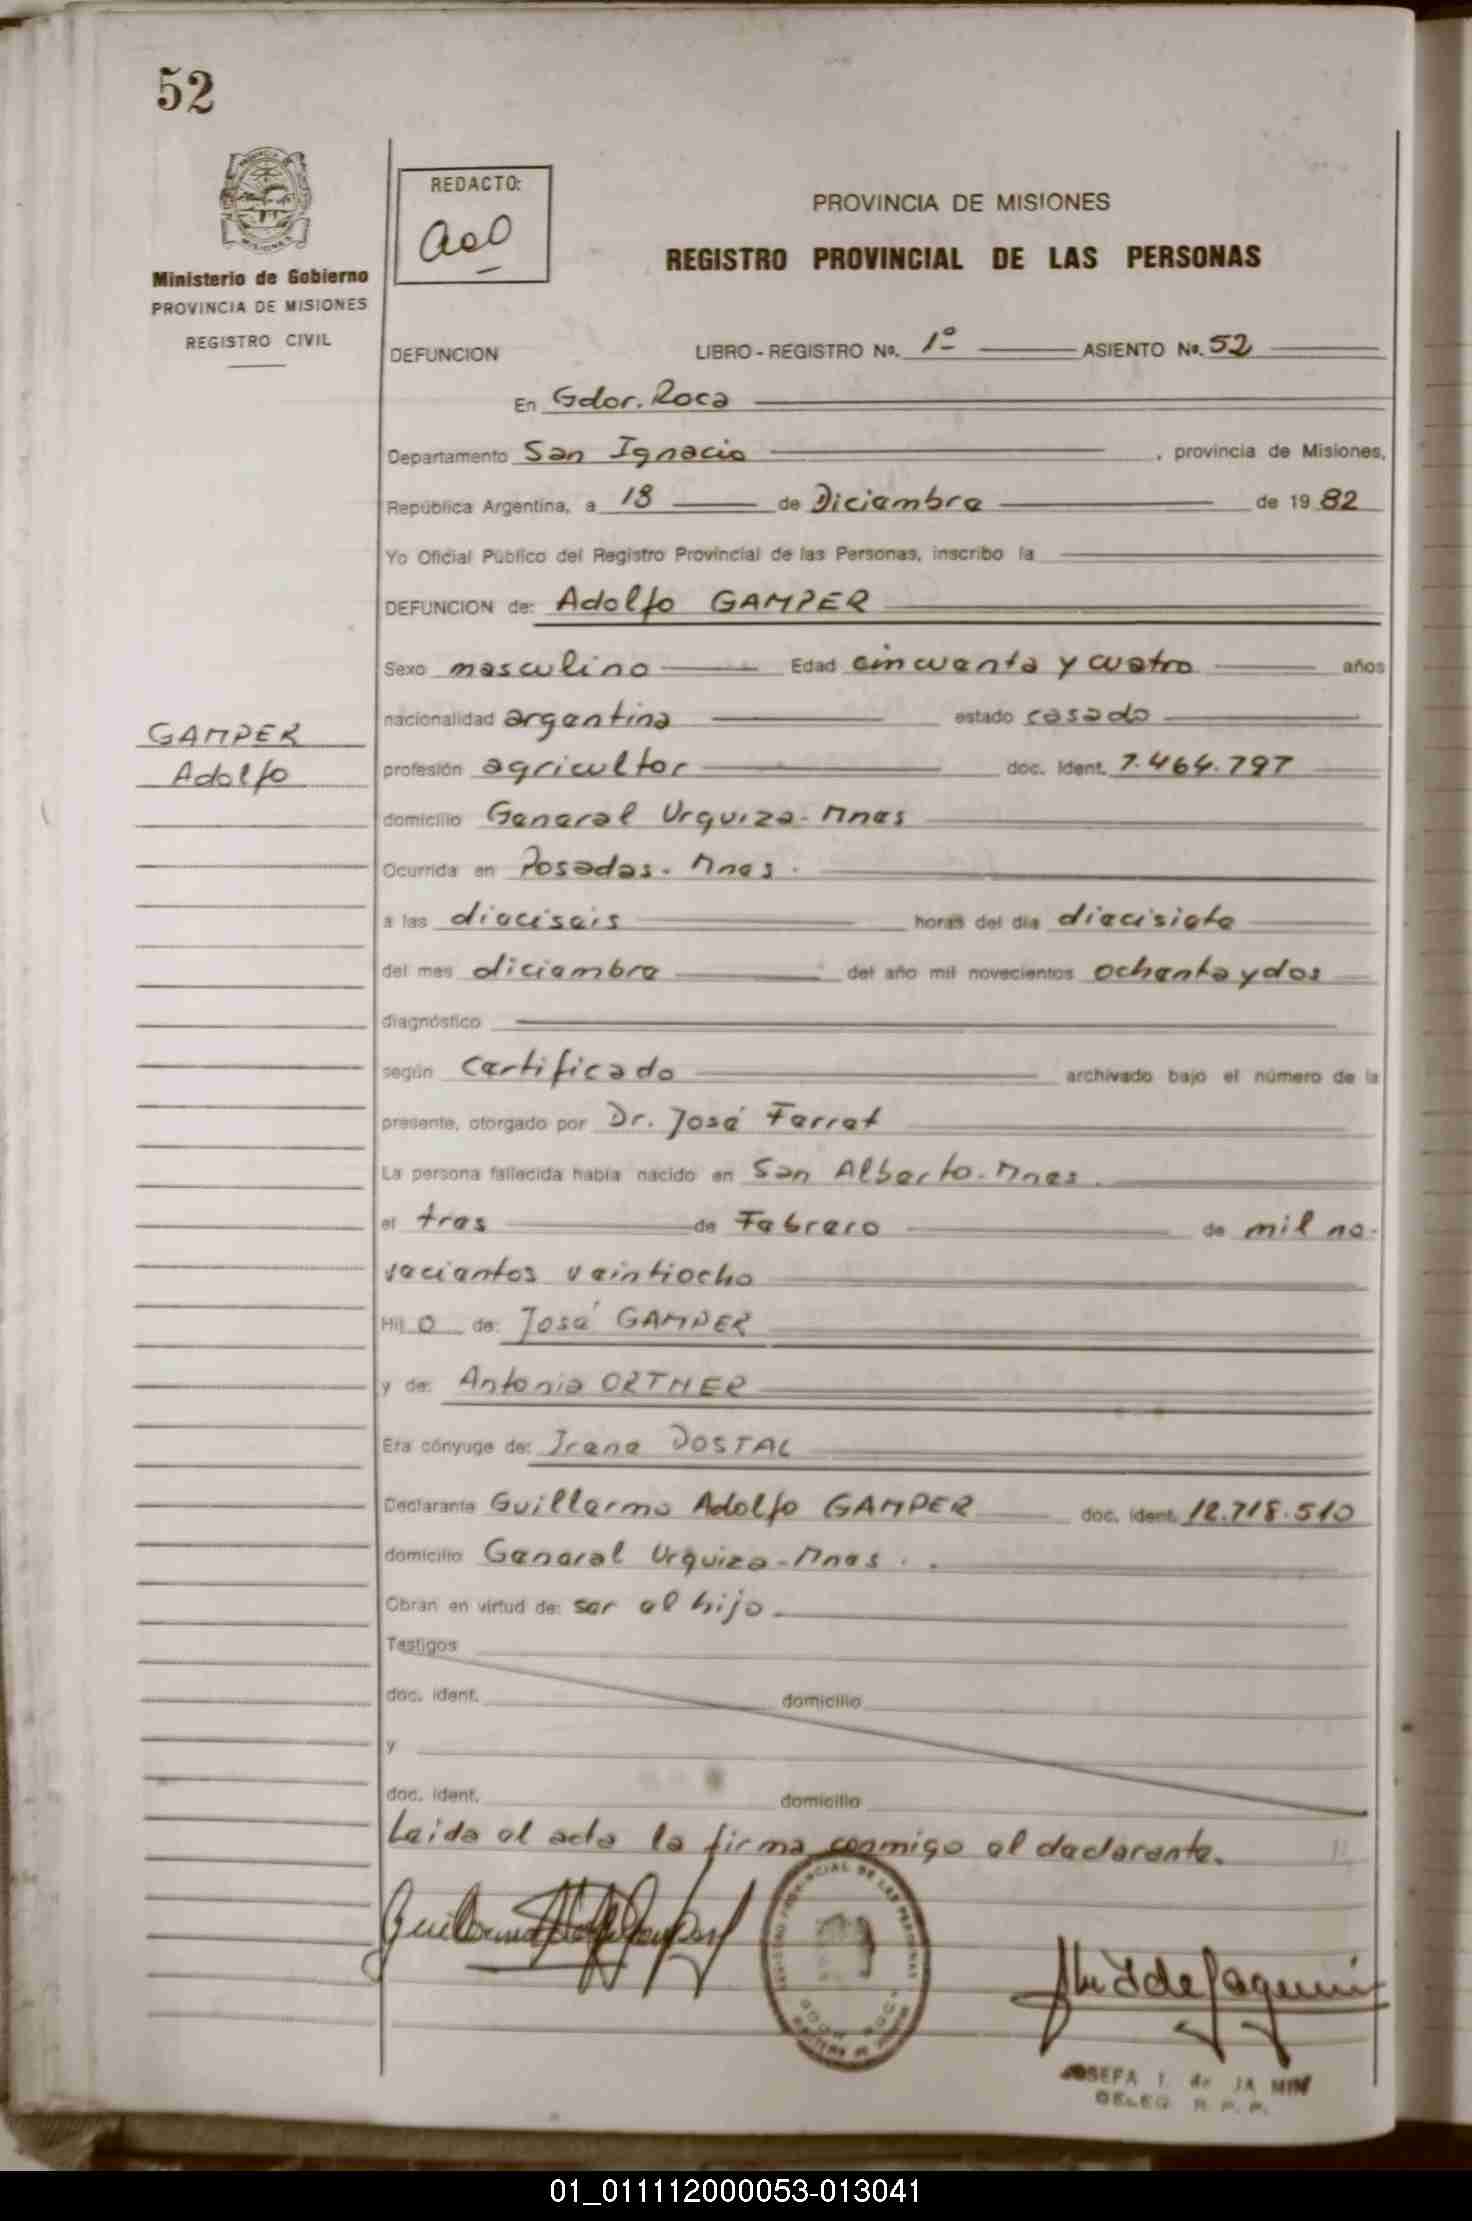 52
REDACTO:
PROVINCIA DE MISIONES
REGISTRO PROVINCIAL DE LAS PERSONAS
Ministerio de Gobierno
PROVINCIA DE MISIONES
REGISTRO CIVIL
DEFUNCION LIBRO - REGISTRO No. 1º ASIENTO No. 52
En Gdor. Roca
Departamento San Ignacio , provincia de Misiones,
República Argentina, a 18 de Diciembre de 19 82
Yo Oficial Público del Registro Provincial de las Personas, inscribo la
DEFUNCION de: Adolfo GAMPER
Sexo masculino Edad cincuenta y cuatro años
nacionalidad argentina estado casado
GAMPER
Adolfo
profesión agricultor doc. ident. 7.464.797
domicilio General Urquiza - Mnes
Ocurrida en Posadas - Mnes.
a las dieciseis horas del día diecisiete
del mes diciembre del año mil novecientos ochenta y dos
diagnóstico
según certificado archivado bajo el número de la
presente, otorgado por Dr. José Ferret
La persona fallecida había nacido en San Alberto - Mnes.
el tres de Febrero de mil no-
vecientos veintiocho
Hij o de: José GAMPER
y de: Antonia ORTNER
Era cónyuge de: Irene DOSTAL
Declarante Guillermo Adolfo GAMPER doc. ident. 12.718.510
domicilio General Urquiza - Mnes.
Obran en virtud de: ser el hijo.
Testigos
doc. ident. domicilio
y
doc. ident. domicilio
Leida el acta la firma conmigo el declarante.
JOSEFA I. de
DELEG. R. P. P.
01_011112000053-013041